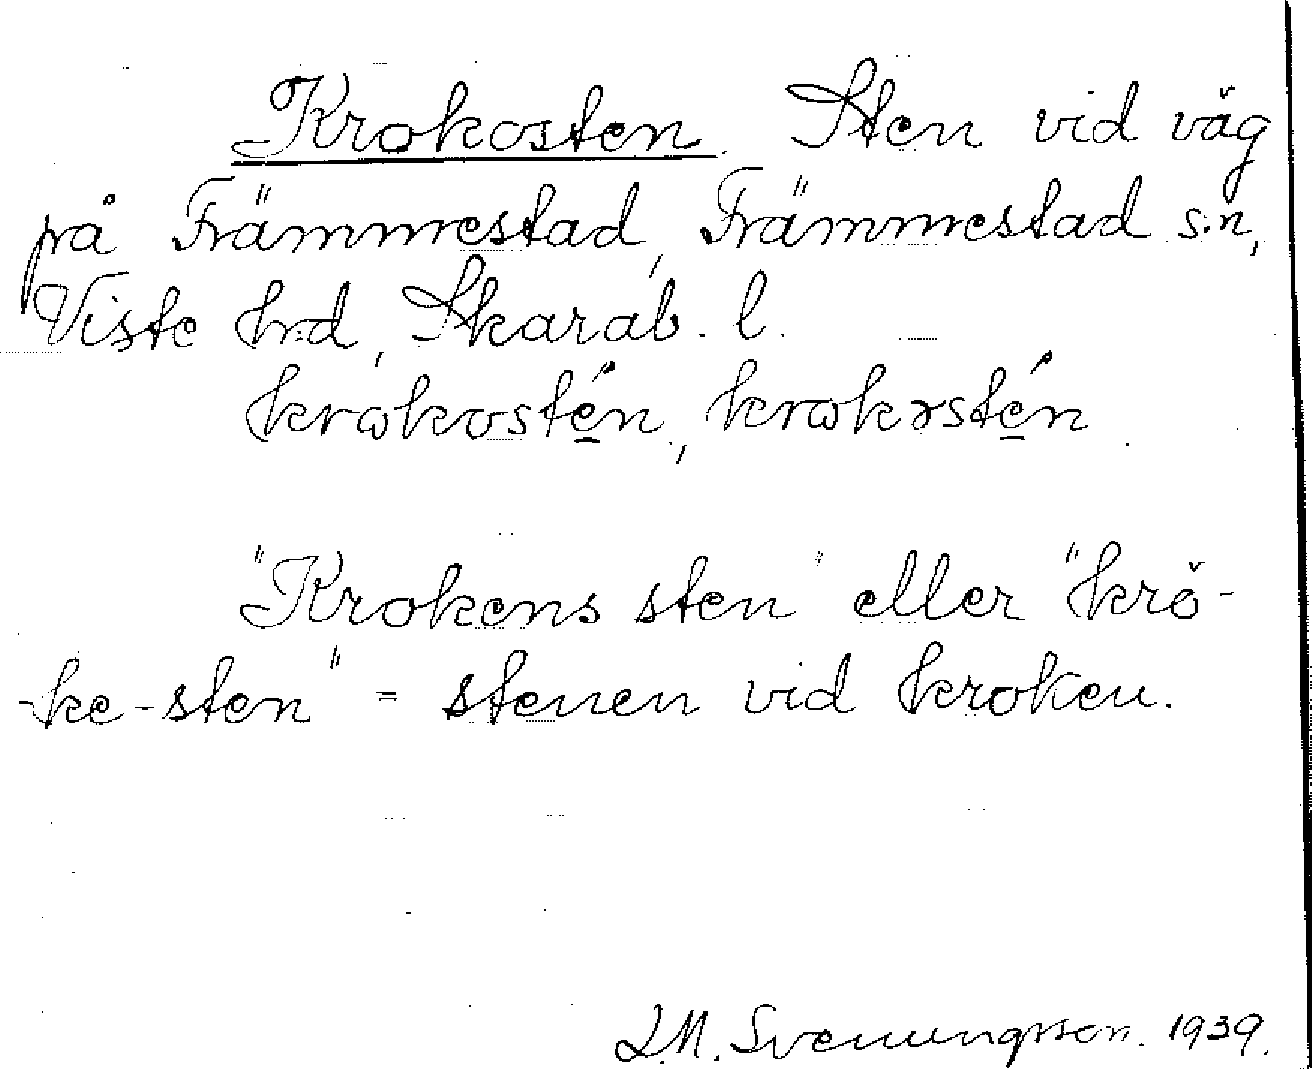 Krokosten. Sten vid väg
på Främmestad, Främmestad s:n,
Viste hrd, Skarab. l.
krωkostén, krωkəstén.
"Krokens sten" eller "krö-
-ke-sten" = stenen vid kroken.
J.M. Svenungsson. 1939.